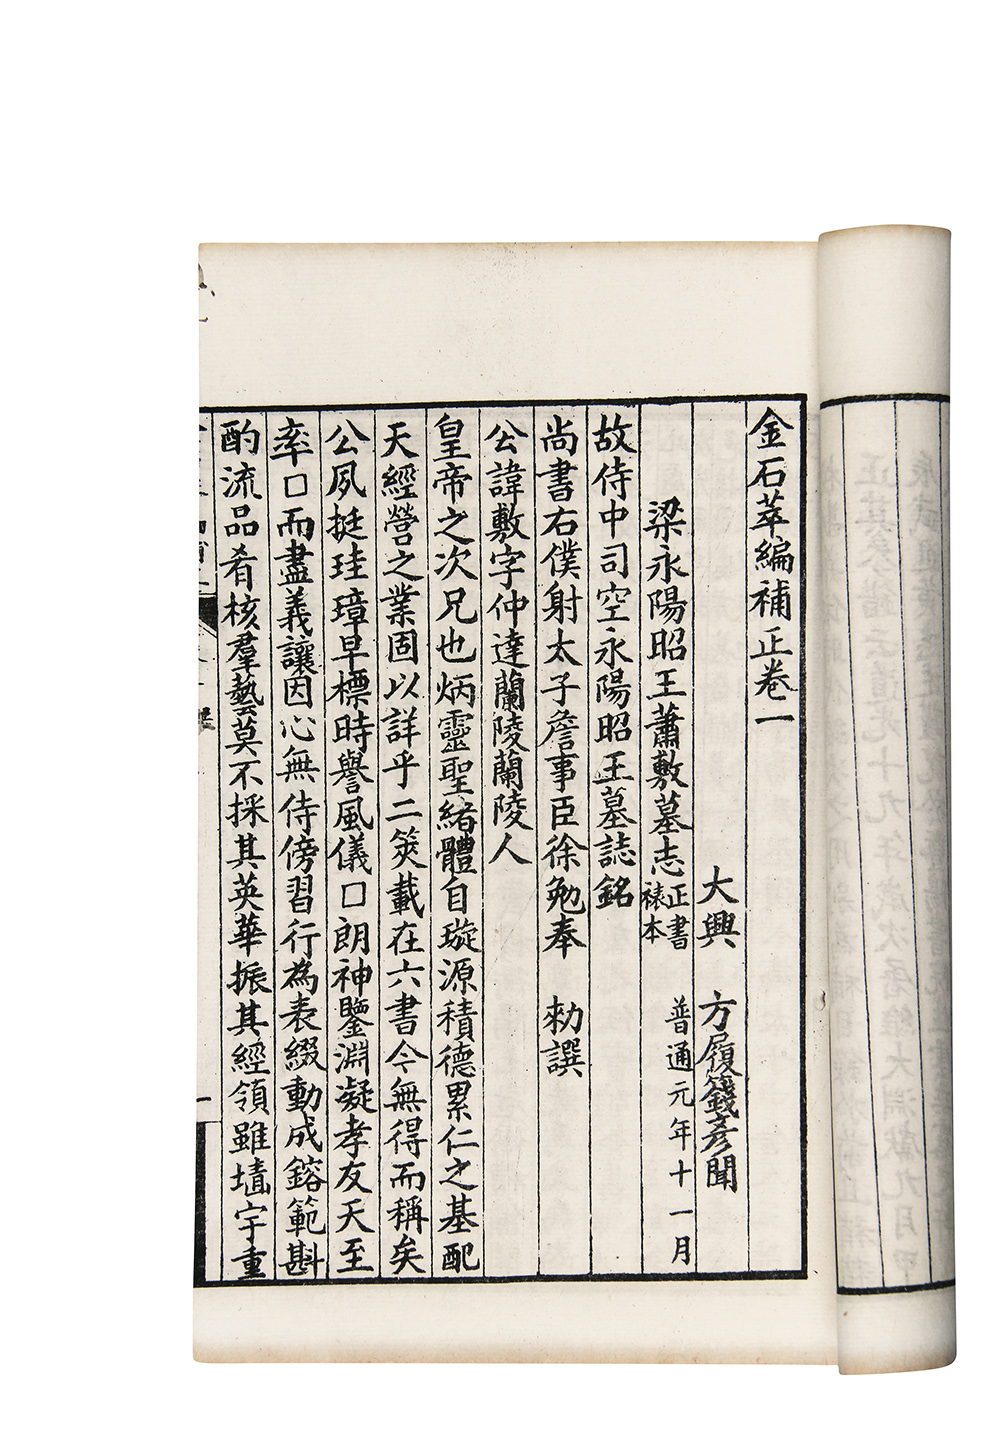 金石萃編補正卷一
大興　方履籛彥聞
梁永陽昭王蕭敷墓志 正書 裱本 普通元年十一月
故侍中司空永陽昭王墓誌銘
尚書右僕射太子詹事臣徐勉奉　勑譔
公諱敷字仲達蘭陵蘭陵人
皇帝之次兄也炳靈聖緒體自璇源積德累仁之基配
天經營之業固以詳乎二筴載在六書今無得而稱矣
公夙挺珪璋早標時譽風儀□朗神鑒淵凝孝友天至
率□而盡義讓因心無待傍習行為表綴動成鎔範斟
酌流品肴核羣藝莫不採其英華振其經領雖墻宇重